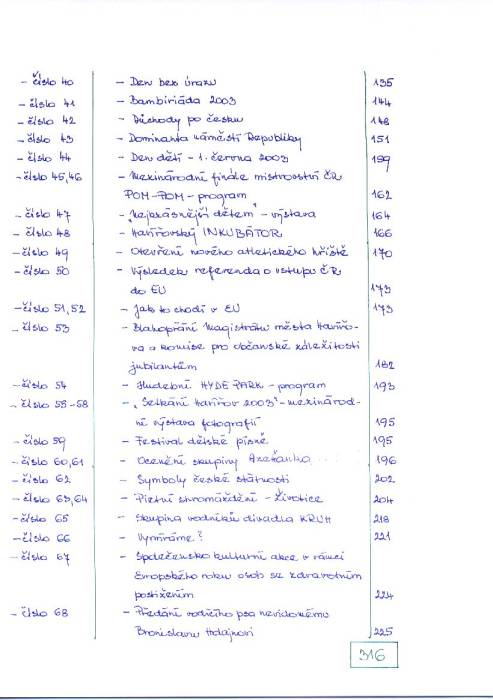 - číslo 40 - Den bez úrazu 135
- číslo 41 - Bambiriáda 2003 144
- číslo 42 - Důchody po česku 148
- číslo 43 - Dominanta náměstí Republiky 151
- číslo 44 - Den dětí - 1. června 2003 159
- číslo 45,46 - Mezinárodní finále mistrovství ČR
POM-POM - program 162
- číslo 47 - "Nejkrásnější dětem" - výstava 164
- číslo 48 - Havířovský INKUBÁTOR 166
- číslo 49 - Otevření nového atletického hřiště 170
- číslo 50 - Výsledek referenda o vstupu ČR
do EU 173
- číslo 51,52 - Jak to chodí v EU 173
- číslo 53 - Blahopřání Magistrátu města Havířo-
va a komise pro občanské záležitosti
jubilantům 182
- číslo 54 - Hudební HYDE PARK - program 193
- číslo 55-58 - "Setkání Havířov 2003" - mezinárod-
ní výstava fotografií 195
- číslo 59 - Festival dětské písně 195
- číslo 60,61 - Ocenění skupiny 196
- číslo 62 - Symboly české státnosti 202
- číslo 63,64 - Pietní shromáždění - Životice 204
- číslo 65 - Skupina vodníků divadla KRUH 218
- číslo 66 - Vymíráme? 221
- číslo 67 - Společensko kulturní akce v rámci
Evropského roku osob se zdravotním
postižením 224
- číslo 68 - Předání vodícího psa nevidomému
Bronislavu Hdajnovi 225
316